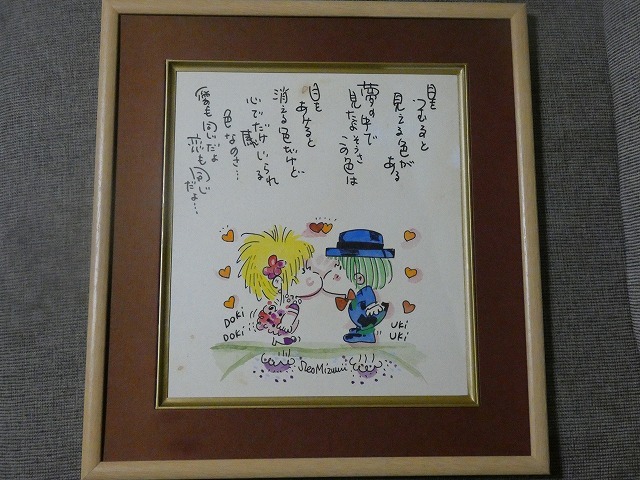 目を
つむると
見える色が
ある
夢の中で
見たよそうさ
この色は
目を
あけると
消える色だけど
心でだけ感じられる
色なのさ…
愛も同じだよ
恋も同じ
だよ…
DOKI
DOKI
UKI
UKI
Neo Mizumi